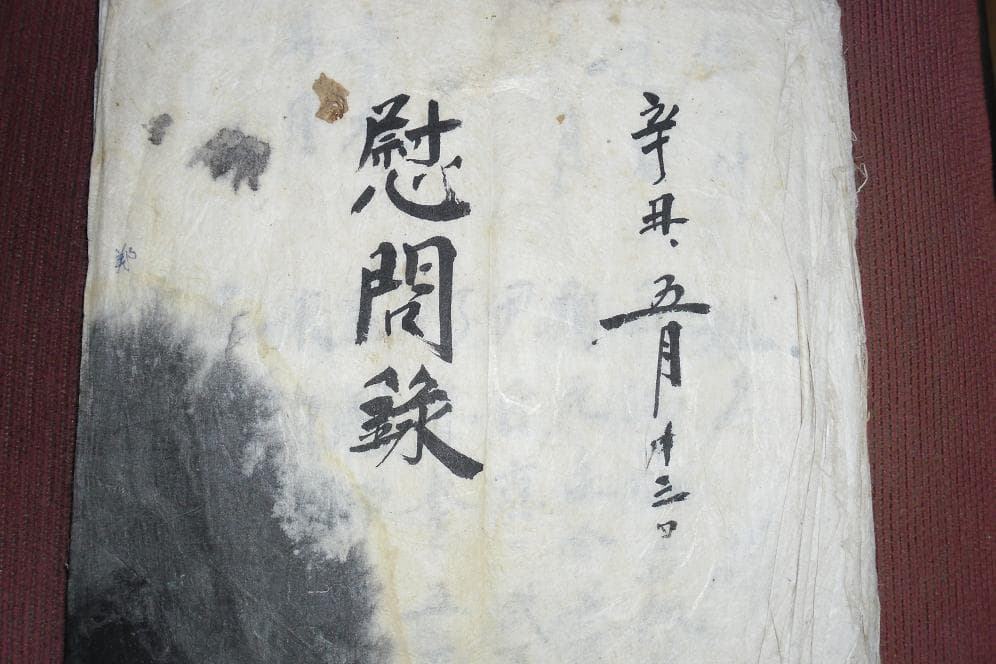 辛丑、五月廿三日
慰問錄